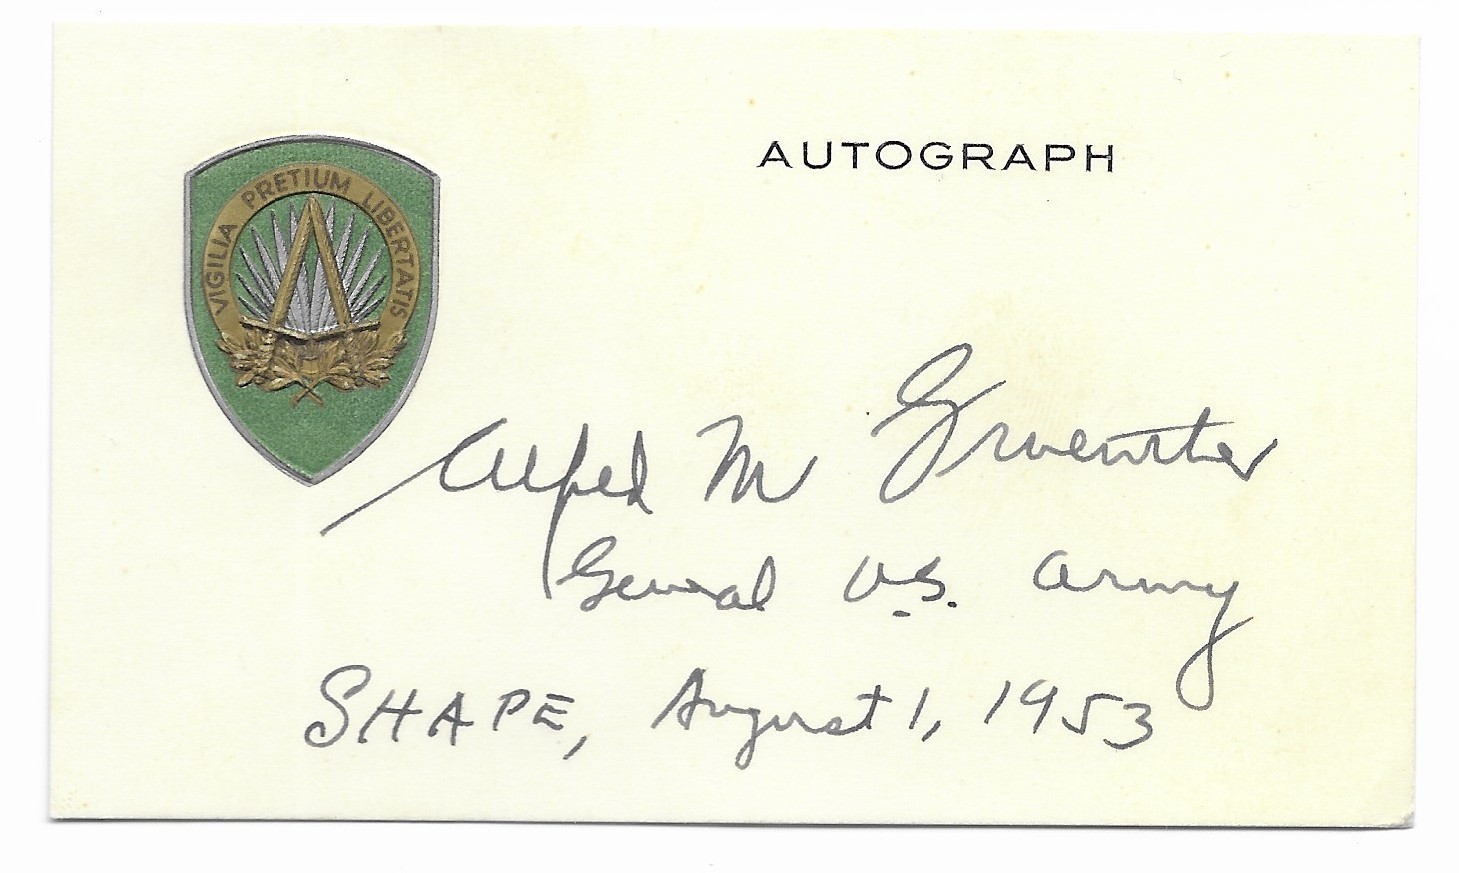 AUTOGRAPH
VIGILIA PRETIUM LIBERTATIS
Alfred M Gruenther
General U.S. Army
SHAPE, August 1, 1953